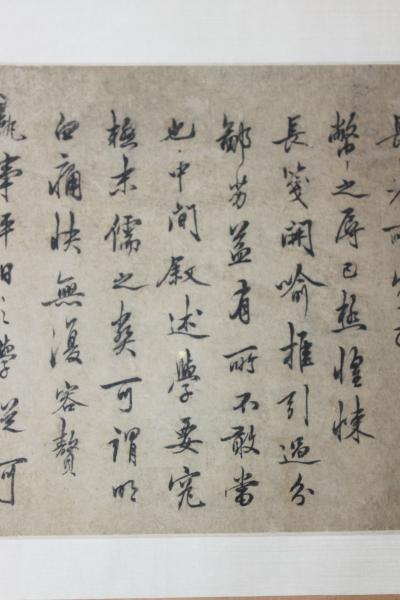 幣之辱已極惶悚
長箋開喻推引過分
鄙劣益有所不敢當
也中間叙述學要究
極末儒之弊可謂明
白痛快無復容贅
事平日之學從可